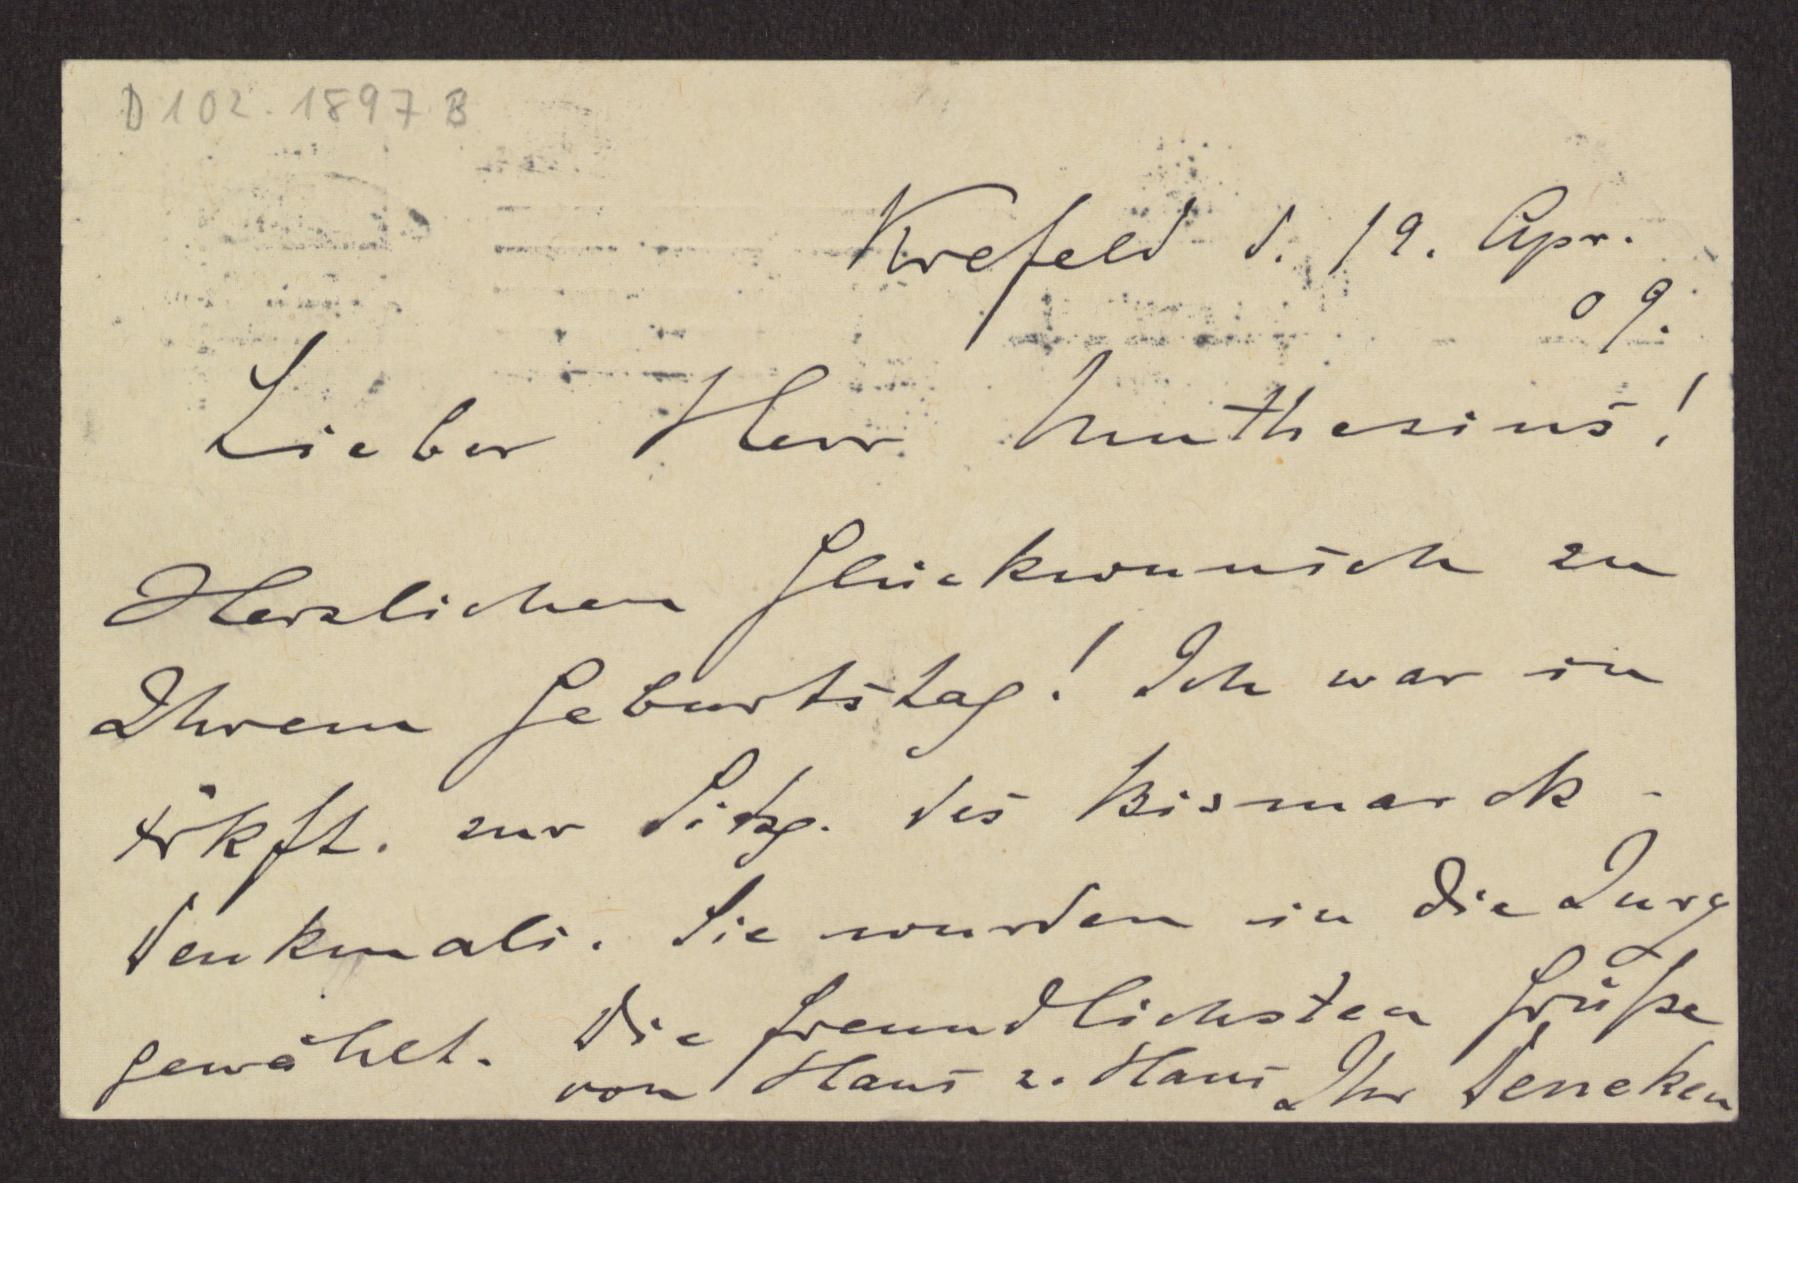 D 102-1897 B
Krefeld d. 19. Apr.
09.
Lieber Herr Muthesius!
Herzlichen Glückwunsch zu
Ihrem Geburtstag! Ich war in
Frkft. zur Sitzg. des Bismarck-
denkmals. Sie wurden in die Jury
gewählt. Die freundlichsten Grüße
von Haus z. Haus Ihr Deneken